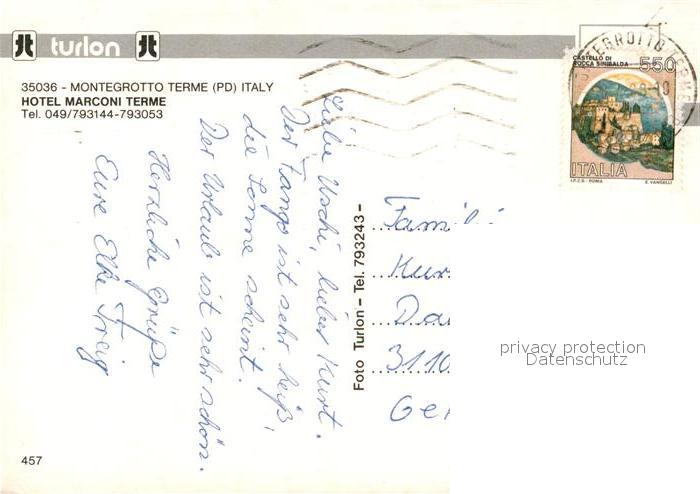 turlon
35036 - MONTEGROTTO TERME (PD) ITALY
HOTEL MARCONI TERME
Tel. 049/793144-793053
Liebe Uschi, lieber Kurt.
Der Fango ist sehr heiß,
die Sonne scheint.
Der Urlaub ist sehr schön.
Herzliche Grüße
Eure Elke
457
Foto Turlon - Tel. 793243-
Famili
Kur
Da
3110
Ge
CASTELLO DI
ROCCA SINIBALDA
550
ITALIA
I.P.Z.S. - ROMA E. VANGELLI
privacy protection
Datenschutz